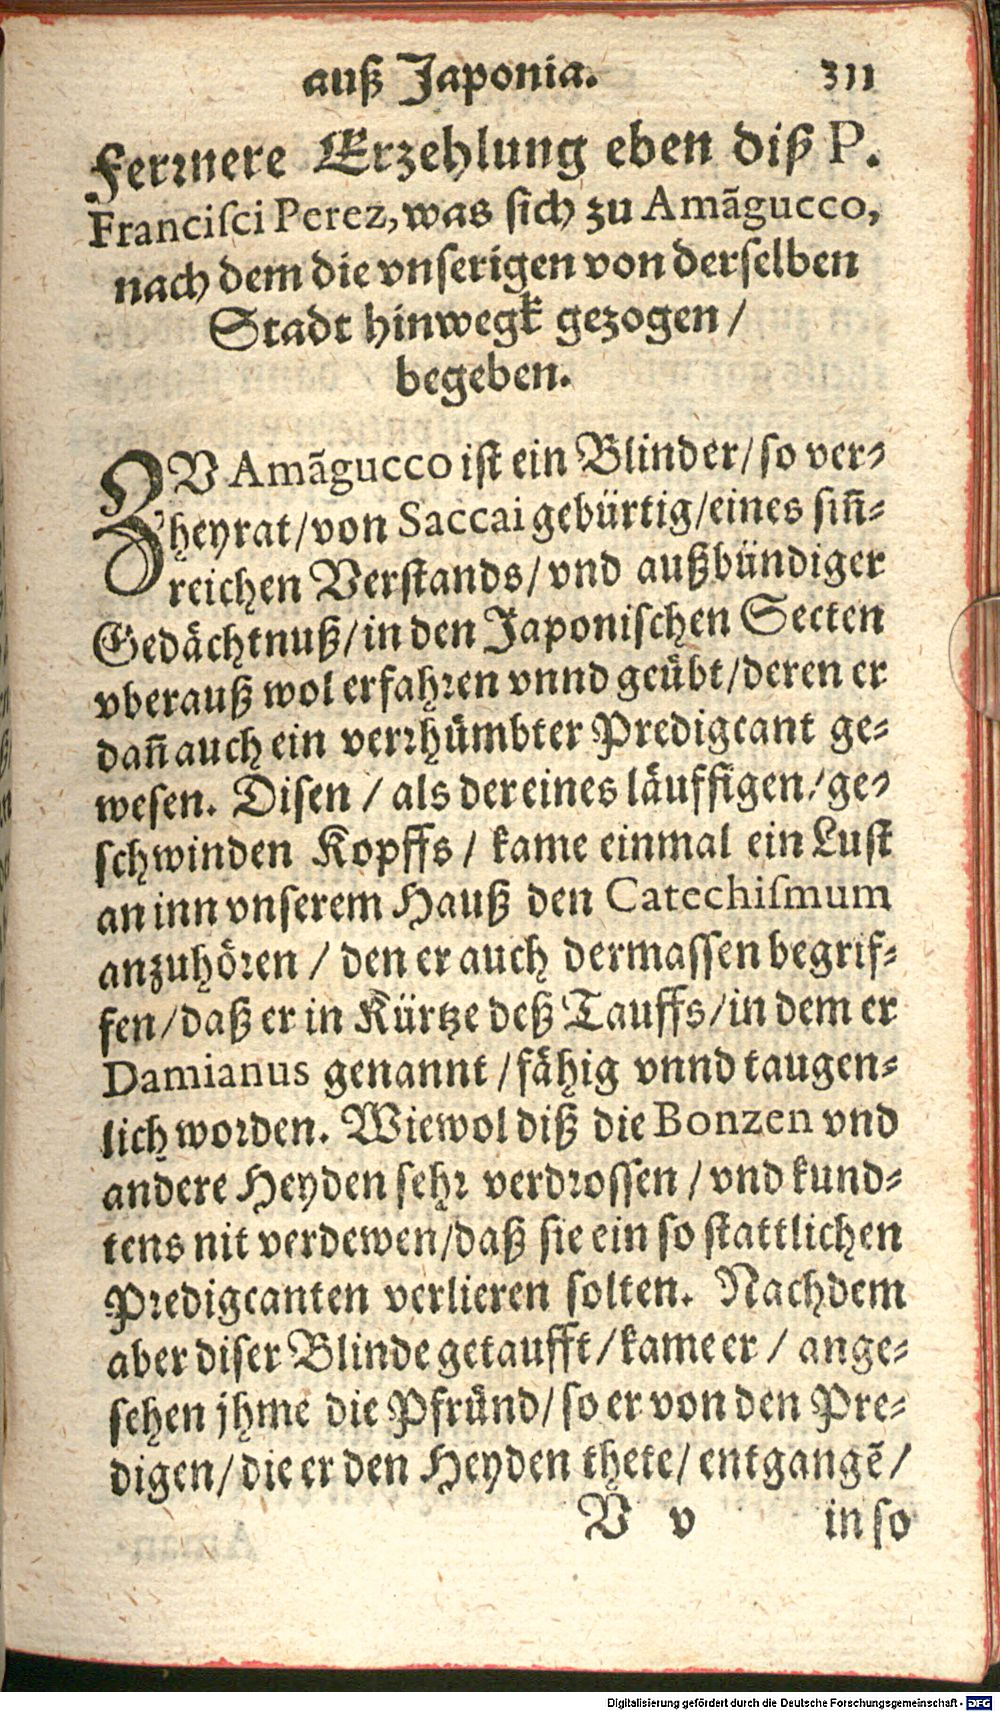 auß Japonia. 311
Fermere Erzehlung eben diß P.
Franciſci Perez, was ſich zu Amãgucco,
nach dem die vnſerigen von derſelben
Stadt hinwegk gezogen /
begeben.
ZV Amãgucco iſt ein Blinder / ſo ver⸗
heyrat / von Saccai gebürtig / eines ſiñ⸗
reichen Verſtands / vnd außbündiger
Gedächtnuß / in den Japoniſchen Secten
vberauß wol erfahren vnnd geübt / deren er
dañ auch ein verrhümbter Predigcant ge⸗
weſen. Diſen / als der eines läuffigen / ge⸗
ſchwinden Kopffs / kame einmal ein Luſt
an inn vnſerem Hauß den Catechiſmum
anzuhören / den er auch dermaſſen begrif⸗
fen / daß er in Kürtze deß Tauffs / in dem er
Damianus genannt / fähig vnnd taugen⸗
lich worden. Wiewol diß die Bonzen vnd
andere Heyden ſehr verdroſſen / vnd kund⸗
tens nit verdewen / daß ſie ein ſo ſtattlichen
Predigcanten verlieren ſolten. Nachdem
aber diſer Blinde getaufft / kame er / ange⸗
ſehen jhme die Pfründ / ſo er von den Pre⸗
digen / die er den Heyden thete / entgangẽ /
V v in ſo
Digitalisierung gefördert durch die Deutsche Forschungsgemeinschaft - DFG